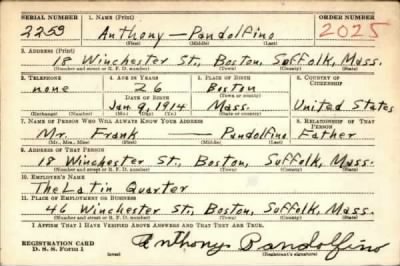 SERIAL NUMBER 1. NAME (Print) ORDER NUMBER
2253 Anthony — Pandolfino 2025
(First) (Middle) (Last)
2. ADDRESS (Print)
18 Winchester St., Boston, Suffolk, Mass.
(Number and street or R. F. D. number) (Town) (County) (State)
3. TELEPHONE 4. AGE IN YEARS 5. PLACE OF BIRTH 6. COUNTRY OF CITIZENSHIP
none 26 Boston
DATE OF BIRTH (Town or county)
Jan 9, 1914 Mass. United States
(Exchange) (Number) (Mo.) (Day) (Yr.) (State or country)
7. NAME OF PERSON WHO WILL ALWAYS KNOW YOUR ADDRESS 8. RELATIONSHIP OF THAT PERSON
Mr. Frank — Pandolfino Father
(Mr., Mrs., Miss) (First) (Middle) (Last)
9. ADDRESS OF THAT PERSON
18 Winchester St., Boston, Suffolk, Mass.
(Number and street or R. F. D. number) (Town) (County) (State)
10. EMPLOYER'S NAME
The Latin Quarter
11. PLACE OF EMPLOYMENT OR BUSINESS
46 Winchester St., Boston, Suffolk, Mass.
(Number and street or R. F. D. number) (Town) (County) (State)
I AFFIRM THAT I HAVE VERIFIED ABOVE ANSWERS AND THAT THEY ARE TRUE.
REGISTRATION CARD
D. S. S. Form 1 Anthony Pandolfino
(Registrant's signature)